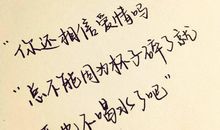 "你还相信爱情吗
"总不能因为杯子碎了就
再也不喝水了吧"